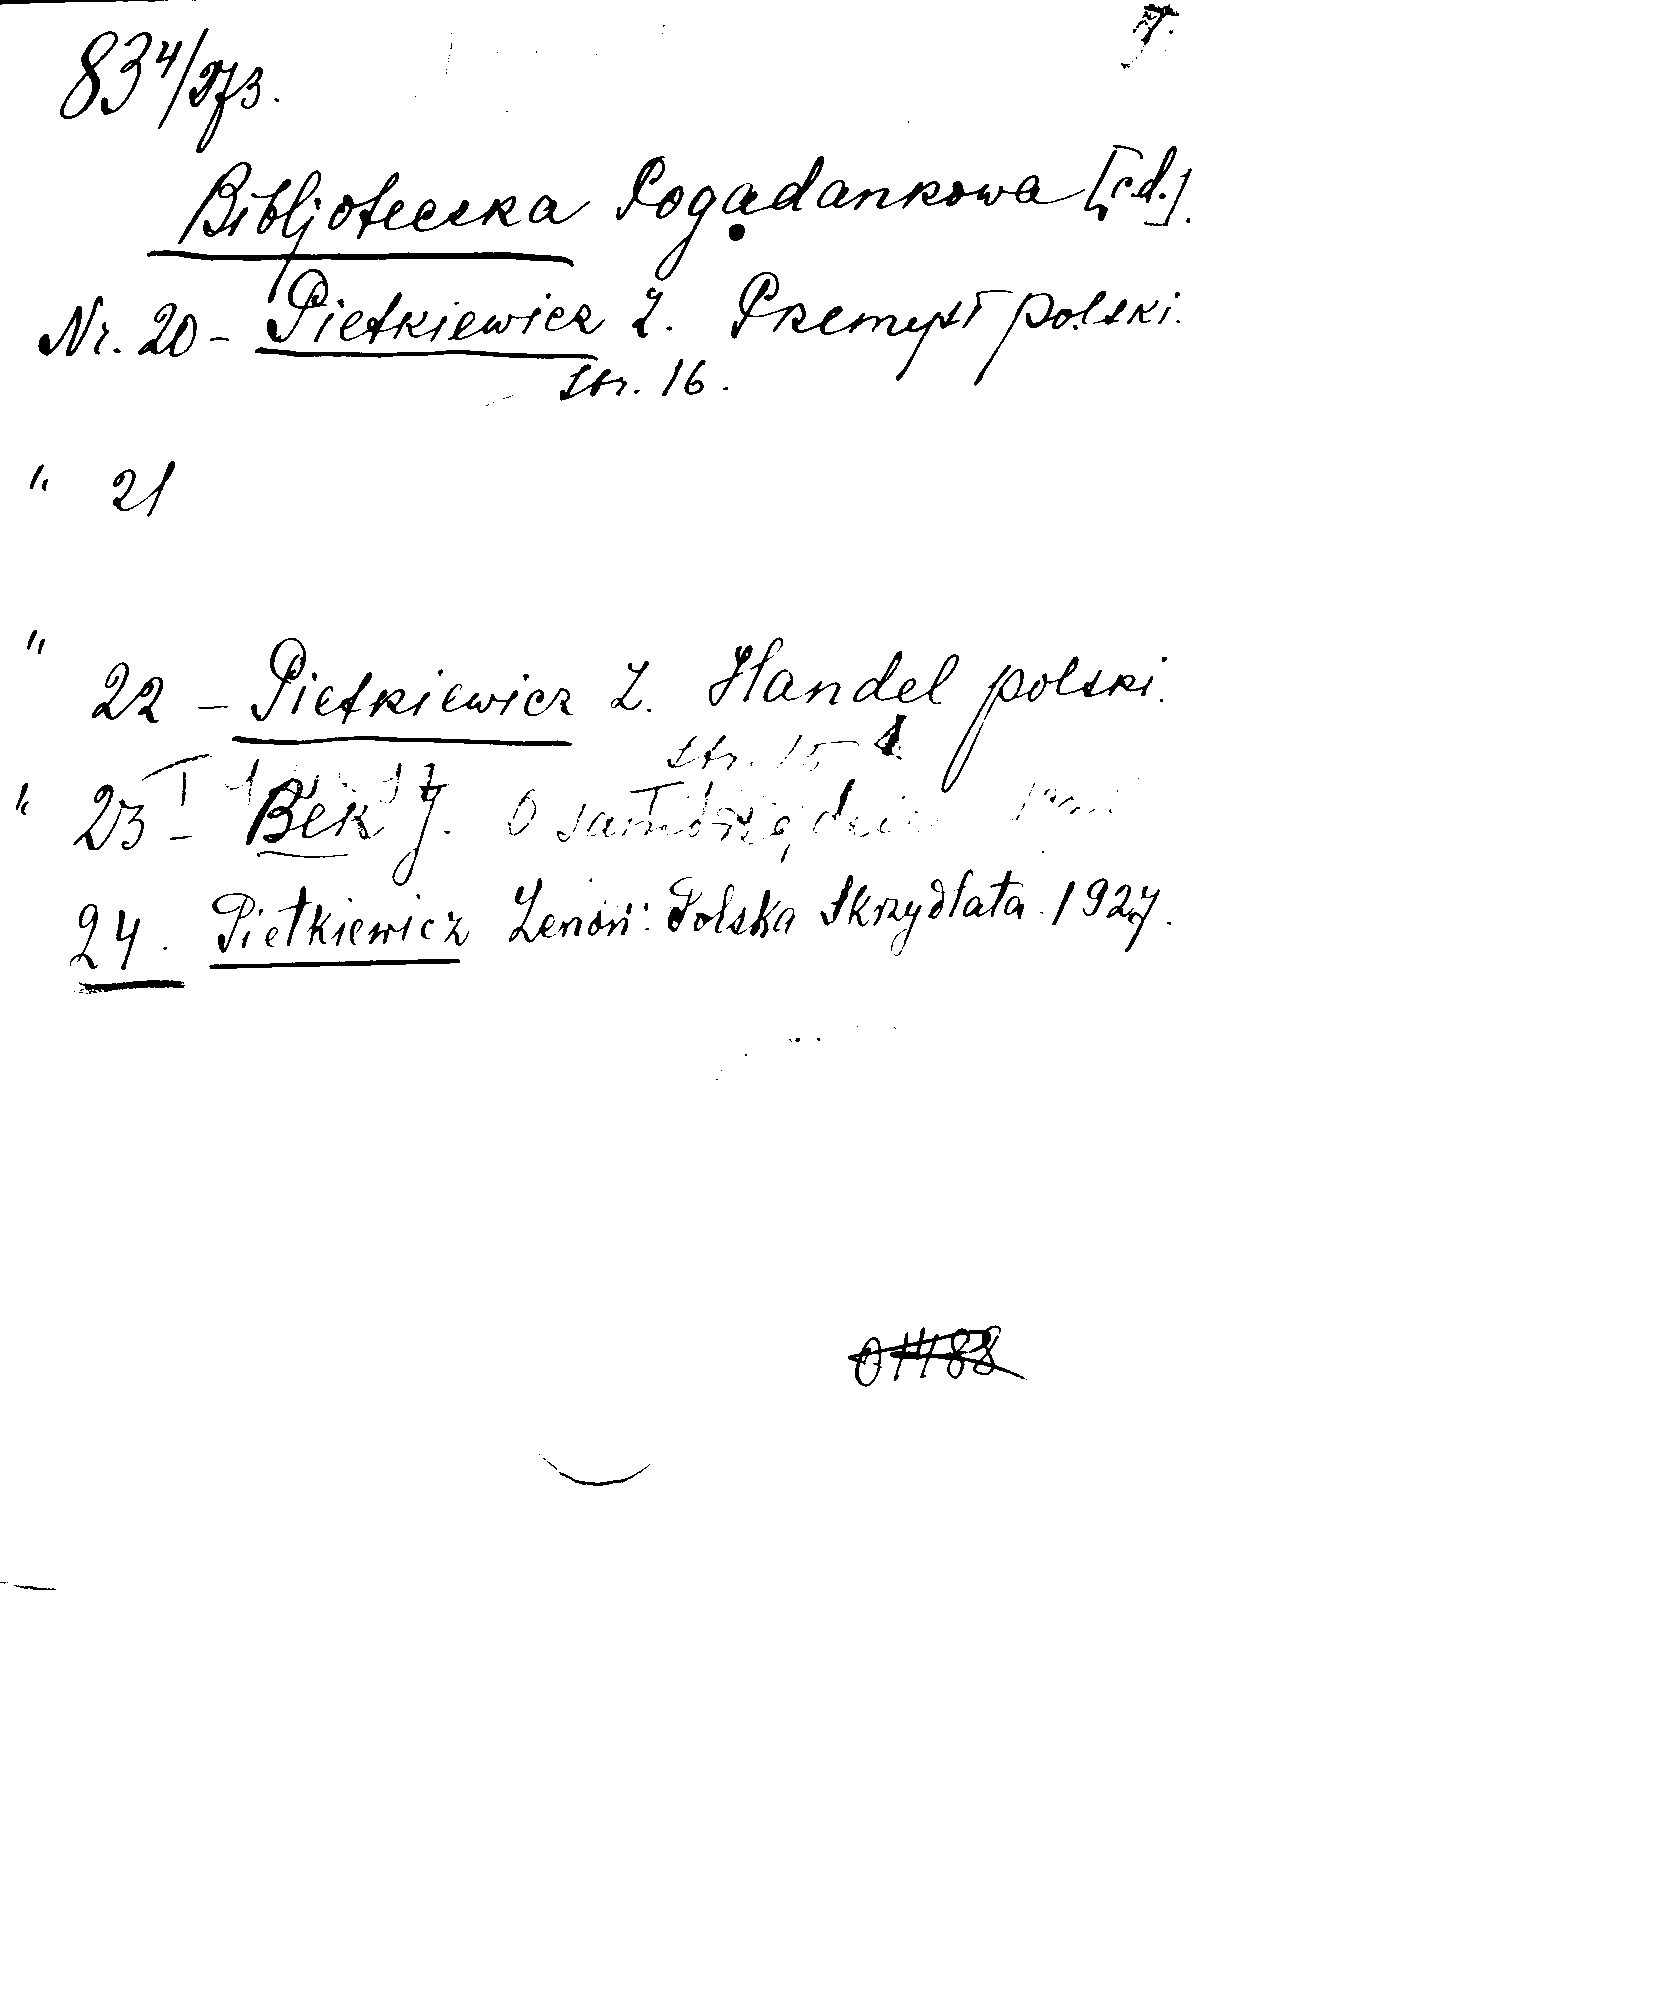 83⁴/273.
Bibljoteczka Pogadankowa [cd.].
Nr. 20 - Pietkiewicz Z. Przemysł polski.
str. 16.
" 21
" 22 - Pietkiewicz Z. Handel polski.
str. 15
" 23 - Bek J. O samorządzie
24. Pietkiewicz Zenon: Polska Skrzydlata. 1927.